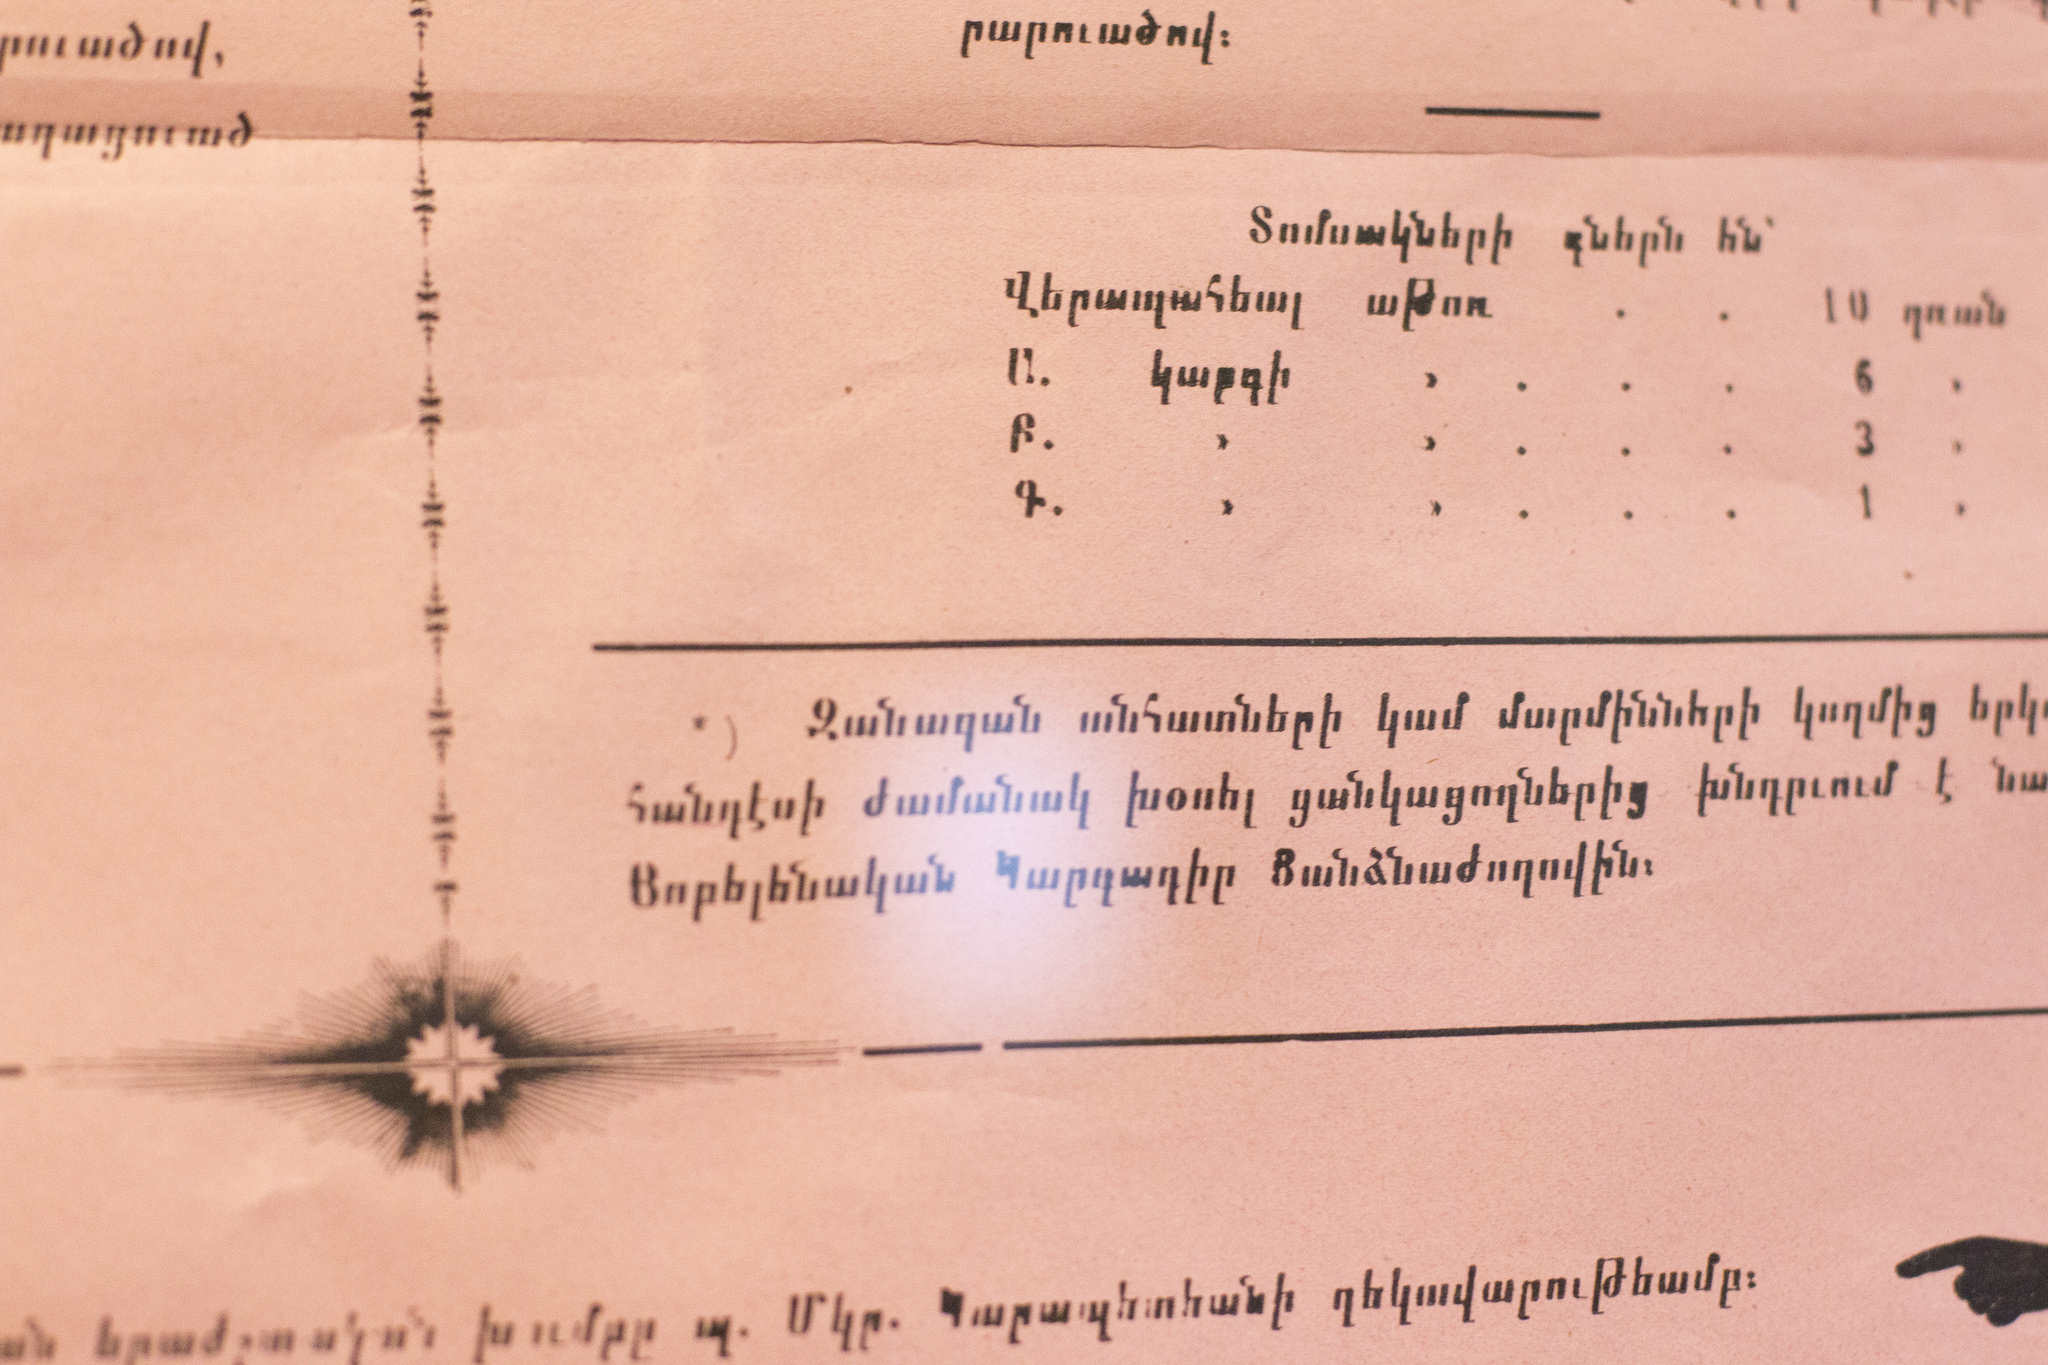 րուածով,
րարուածով։
աղացուած
Տոմսակների գներն են՝
Վերապահեալ աթոռ . . 10 ղռան
Ա. կարգի » . . . 6 »
Բ. » » . . . 3 »
Գ. » » . . . 1 »
*) Զանազան անհատների կամ մարմինների կողմից երկ
հանդէսի ժամանակ խօսել ցանկացողներից խնդրւում է նա
Յոբելենական Կարգադիր Յանձնաժողովին։
ան երաժշտական խումբը պ. Մկր. Կարապետեանի ղեկավարութեամբ։